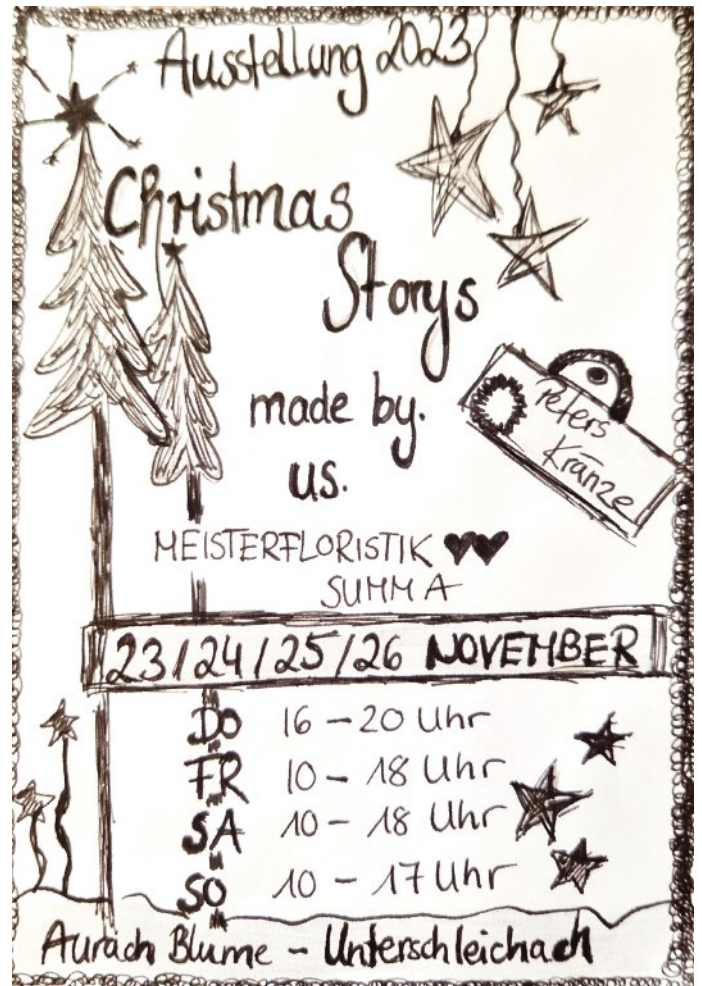 Ausstellung 2023
Christmas
Storys
made by.
us.
Peters
Kränze
MEISTERFLORISTIK
SUMMA
23/24/25/26 NOVEMBER
DO 16 - 20 Uhr
FR 10 - 18 Uhr
SA 10 - 18 Uhr
SO 10 - 17 Uhr
Aurach Blume - Unterschleichach